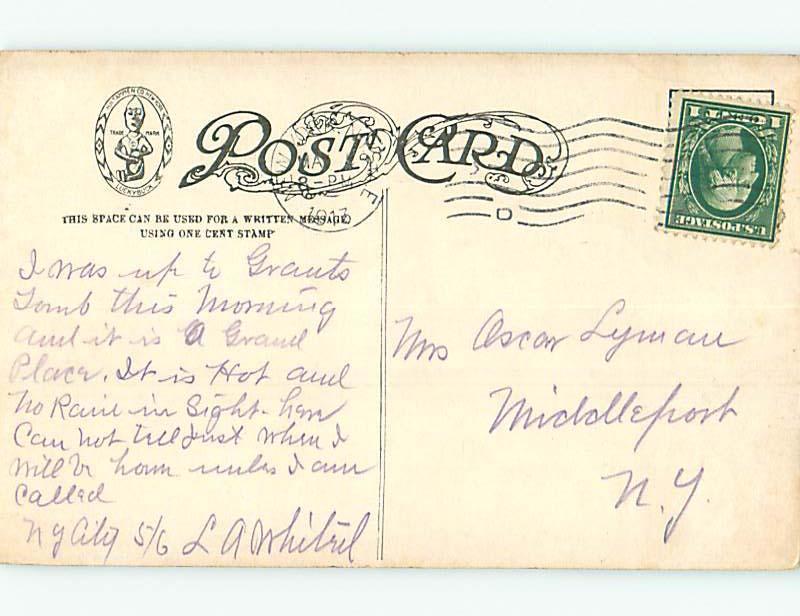 TRADE MARK
LUCKYBUCK
POST CARD
THIS SPACE CAN BE USED FOR A WRITTEN MESSAGE
USING ONE CENT STAMP
U.S. POSTAGE
1 1
I was up to Grants
Tomb this Morning
and it is A Grand
Place. It is Hot and
No Rain in Sight- here
Can not tell Just when I
will be home unless I am
Called
N Y City 5/6 L A
Mrs Oscar Lyman
Middleport
N. Y.